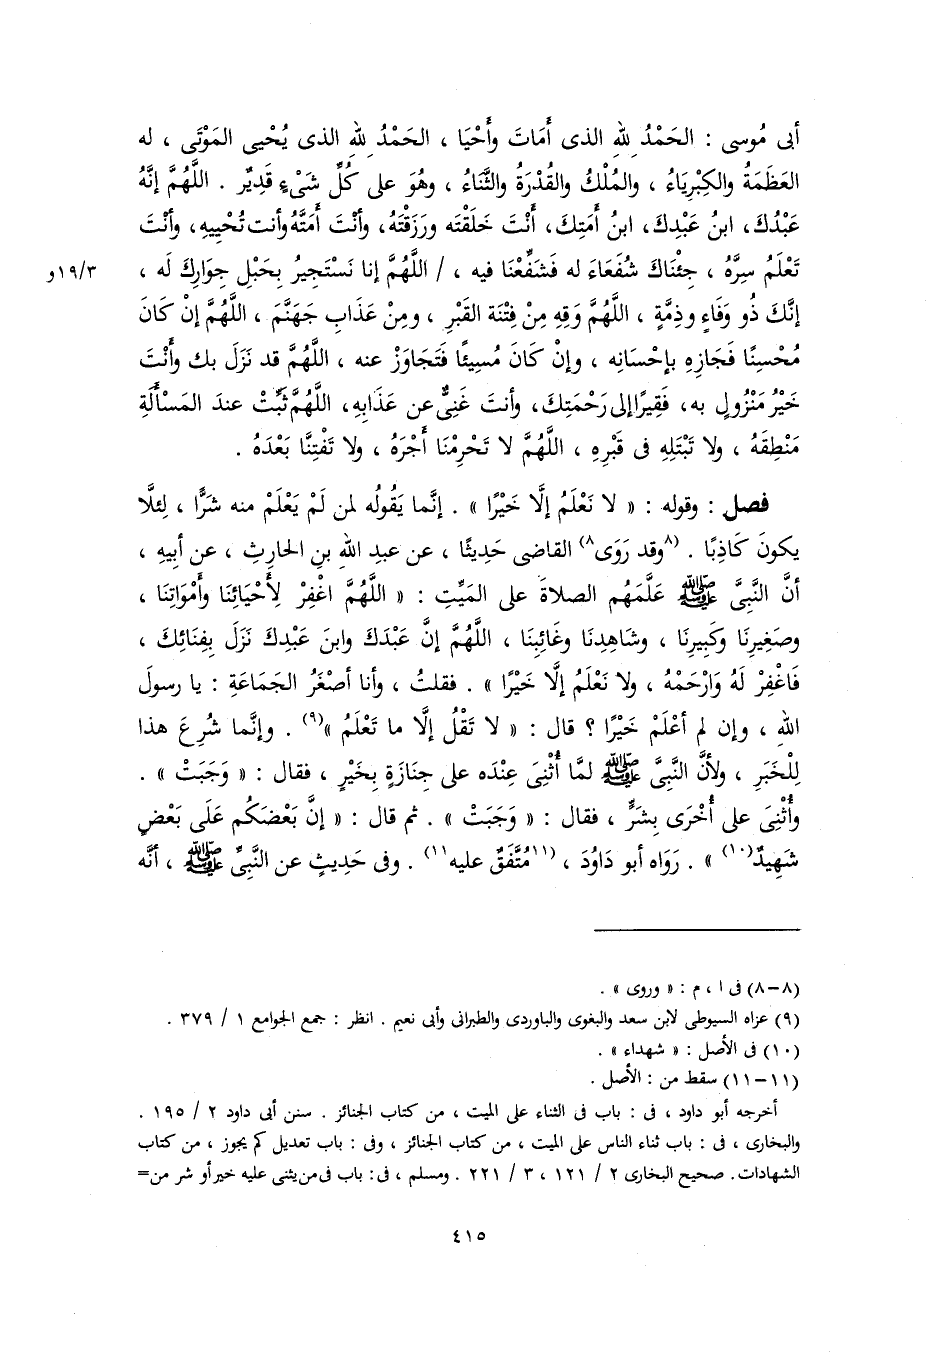 أبى مُوسى : الحَمْدُ لله الذى أَمَاتَ وأَحْيَا ، الحَمْدُ لله الذى يُحْيِى المَوْتَى ، له
العَظَمَةُ والكِبْرِيَاءُ ، والمُلْكُ والقُدْرَةُ والثَّنَاءُ ، وهُوَ على كُلِّ شَىْءٍ قَدِيرٌ . اللَّهُمَّ إنَّهُ
عَبْدُكَ، ابنُ عَبْدِكَ، ابنُ أَمَتِكَ، أَنْتَ خَلَقْتَه ورَزَقْتَهُ، وأَنْتَ أَمَتَّهُ وأنت تُحْيِيهِ، وأنْتَ
تَعْلَمُ سِرَّهُ ، جِئْنَاكَ شُفَعَاءَ له فَشَفِّعْنَا فيه ، / اللَّهُمَّ إنا نَسْتَجِيرُ بِحَبْلِ جِوَارِكَ لَه ،
١٩/٣و
إنَّكَ ذُو وَفَاءٍ وذِمَّةٍ ، اللَّهُمَّ وَقِهِ مِنْ فِتْنَة القَبْرِ ، ومِنْ عَذَابِ جَهَنَّمَ ، اللَّهُمَّ إنْ كَانَ
مُحْسِنًا فَجَازِهِ بإحْسَانِه ، وإنْ كَانَ مُسِيئًا فَتَجَاوَزْ عنه ، اللَّهُمَّ قد نَزَلَ بك وأَنْتَ
خَيْرُ مَنْزُولٍ به، فَقِيرًا إلى رَحْمَتِكَ، وأنتَ غَنِىٌّ عن عَذَابِه، اللَّهُمَّ ثَبِّتْ عندَ المَسْأَلَةِ
مَنْطِقَهُ ، ولا تَبْتَلِهِ فى قَبْرِهِ ، اللَّهُمَّ لا تَحْرِمْنَا أَجْرَهُ ، ولا تَفْتِنَّا بَعْدَهُ .
فصل : وقوله : « لا نَعْلَمُ إلَّا خَيْرًا » . إنَّما يَقُولُه لمن لَمْ يَعْلَمْ منه شَرًّا ، لِئلَّا
يكونَ كَاذِبًا . (٨وقد رَوَى٨) القاضى حَدِيثًا ، عن عبدِ اللهِ بنِ الحارِثِ ، عن أبِيه ،
أنَّ النَّبِىَّ ﷺ عَلَّمَهُم الصلاةَ على المَيِّتِ : « اللَّهُمَّ اغْفِرْ لِأَحْيَائِنَا وأَمْوَاتِنَا ،
وصَغِيرِنَا وكَبِيرِنَا ، وشَاهِدِنَا وغَائِبِنَا ، اللَّهُمَّ إنَّ عَبْدَكَ وابنَ عَبْدِكَ نَزَلَ بِفِنَائِكَ ،
فَاغْفِرْ لَهُ وَارْحَمْهُ ، ولا نَعْلَمُ إلَّا خَيْرًا » . فقلتُ ، وأنا أصْغَرُ الجَمَاعَةِ : يا رسولَ
اللهِ ، وإن لم أَعْلَمْ خَيْرًا ؟ قال : « لا تَقُلْ إلَّا ما تَعْلَمُ »(٩) . وإنَّما شُرِعَ هذا
لِلْخَبَرِ ، ولأنَّ النَّبِىَّ ﷺ لمَّا أُثْنِىَ عِنْدَه على جِنَازَةٍ بِخَيْرٍ ، فقال : « وَجَبَتْ » .
وأُثْنِىَ على أُخْرَى بِشَرٍّ ، فقال : « وَجَبَتْ » . ثم قال : « إنَّ بَعْضَكُم عَلَى بَعْضٍ
شَهِيدٌ(١٠) » . رَوَاه أبو دَاوُدَ ، (١١مُتَّفَقٌ عليه١١) . وفى حَدِيثٍ عن النَّبِىِّ ﷺ ، أنَّه
(٨-٨) فى ا ، م : « وروى » .
(٩) عزاه السيوطى لابن سعد والبغوى والباوردى والطبرانى وأبى نعيم . انظر : جمع الجوامع ١ / ٣٧٩ .
(١٠) فى الأصل : « شهداء » .
(١١-١١) سقط من : الأصل .
أخرجه أبو داود ، فى : باب فى الثناء على الميت ، من كتاب الجنائز . سنن أبى داود ٢ / ١٩٥ .
والبخارى ، فى : باب ثناء الناس على الميت ، من كتاب الجنائز ، وفى : باب تعديل كم يجوز ، من كتاب
الشهادات. صحيح البخارى ٢ / ١٢١ ، ٣ / ٢٢١ . ومسلم ، فى : باب فى من يثنى عليه خير أو شر من=
٤١٥